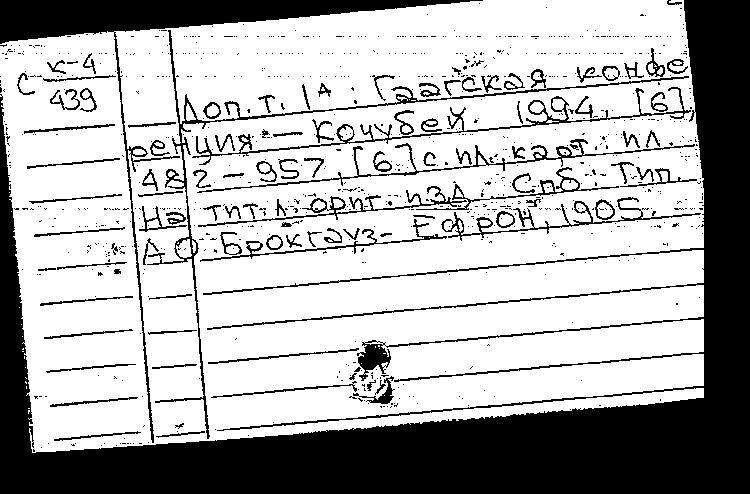 С к-4
439
Доп. т. 1А : Гаагская конфе
ренция — Кочубей. 1994, [6],
482 - 957, [6] с. ил., карт.: ил.
На тит. л. ориг. изд. Спб : Тип.
АО Брокгауз - Ефрон, 1905.